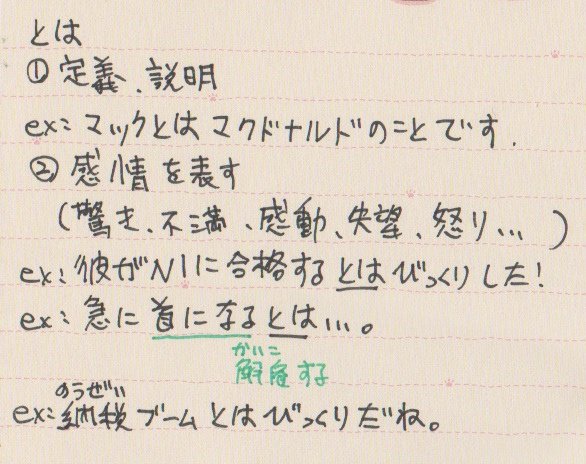 とは
① 定義、説明
ex: マックとは マクドナルドのことです.
② 感情を表す
(驚き、不満、感動、失望、怒り...)
ex: 彼がN1に合格するとはびっくりした!
ex: 急に首になるとは...。
かいこ
解雇する
のうぜい
ex: 納税ブームとはびっくりだね。